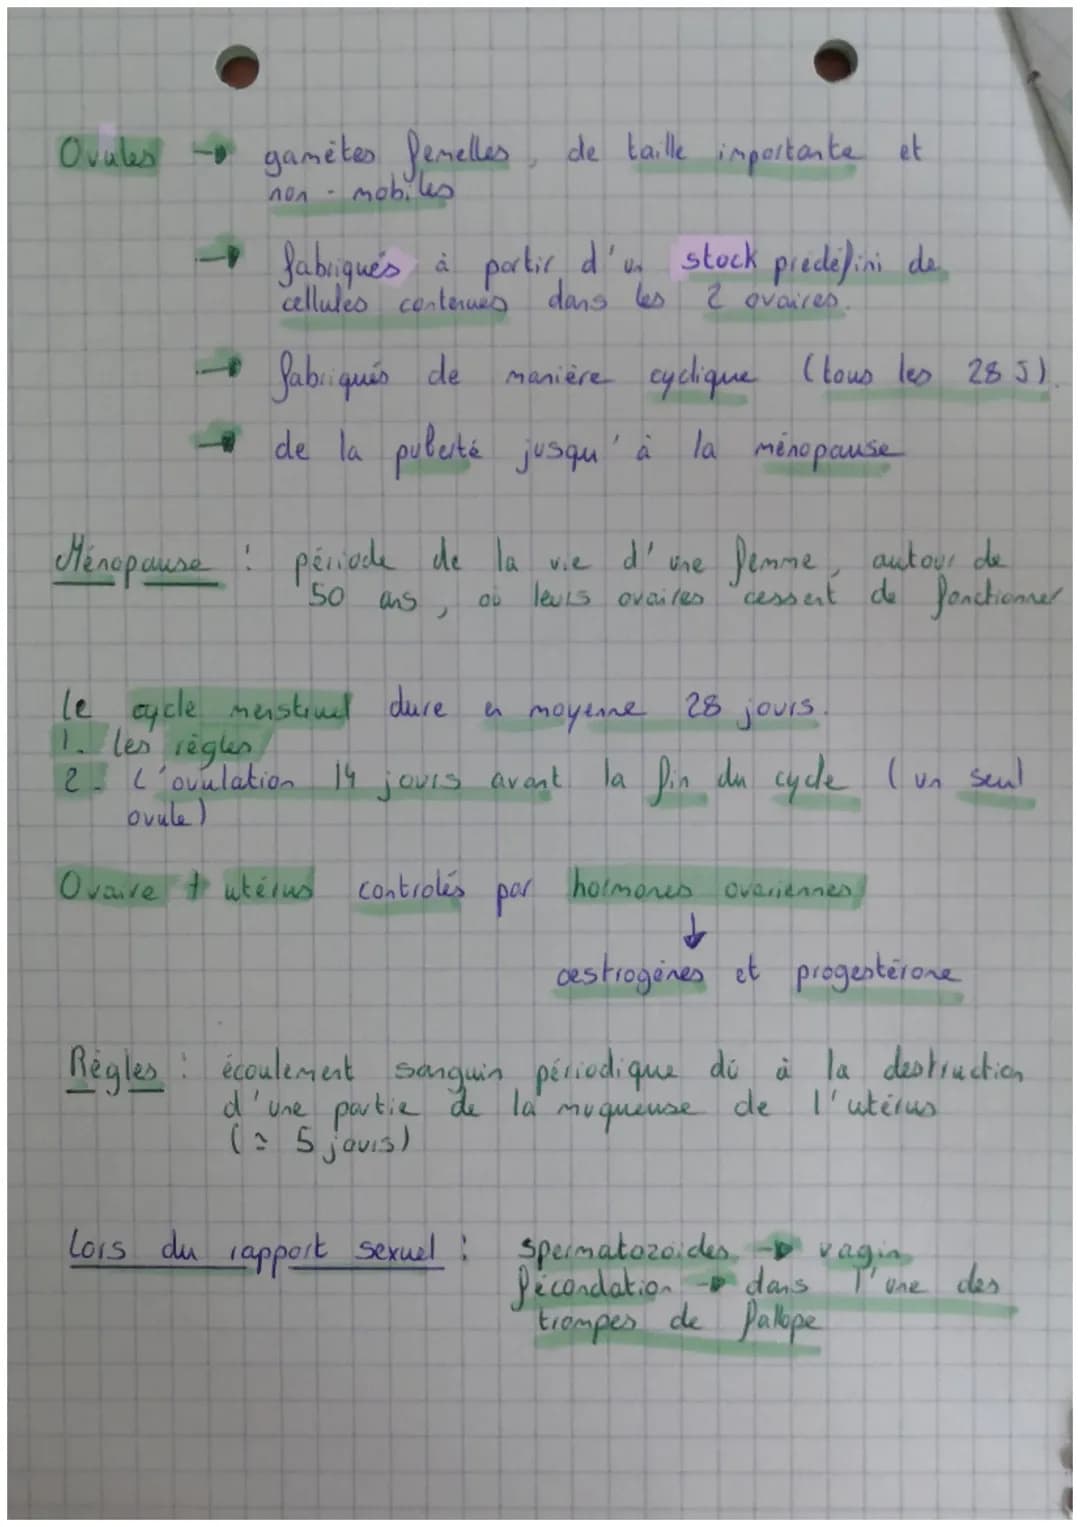 Ovules → gamètes femelles, de taille importante et
non-mobiles
→ fabriqués à partir d'un stock prédéfini de
cellules contenues dans les 2 ovaires.
→ fabriqués de manière cyclique (tous les 28 J).
→ de la puberté jusqu'à la ménopause
Ménopause : période de la vie d'une femme, autour de
50 ans, où leurs ovaires cessent de fonctionner
Le cycle menstruel dure en moyenne 28 jours.
1. Les règles
2. L'ovulation 14 jours avant la fin du cycle (un seul
ovule)
Ovaire + utérus controlés par hormones ovariennes
↓
œstrogènes et progestérone
Règles : écoulement sanguin périodique dû à la destruction
d'une partie de la muqueuse de l'utérus
(≃ 5 jours)
Lors du rapport sexuel : spermatozoïdes → vagin
fécondation → dans l'une des
trompes de fallope